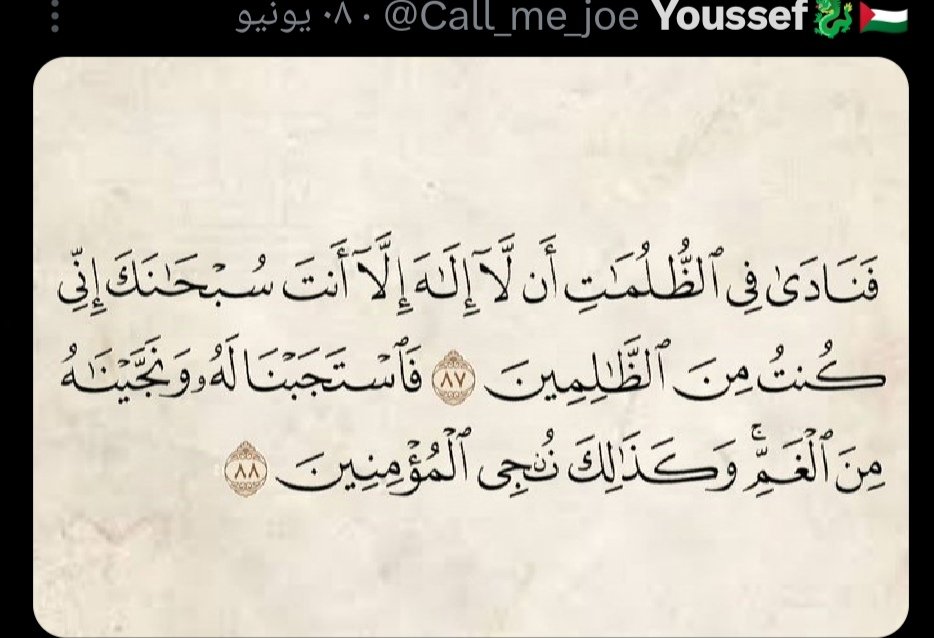 Youssef🐉🇵🇸 @Call_me_joe · ٠٨ يونيو
فَنَادَىٰ فِى ٱلظُّلُمَـٰتِ أَن لَّآ إِلَـٰهَ إِلَّآ أَنتَ سُبْحَـٰنَكَ إِنِّى
كُنتُ مِنَ ٱلظَّـٰلِمِينَ ٨٧ فَٱسْتَجَبْنَا لَهُۥ وَنَجَّيْنَـٰهُ
مِنَ ٱلْغَمِّ ۚ وَكَذَٰلِكَ نُـۨجِى ٱلْمُؤْمِنِينَ ٨٨